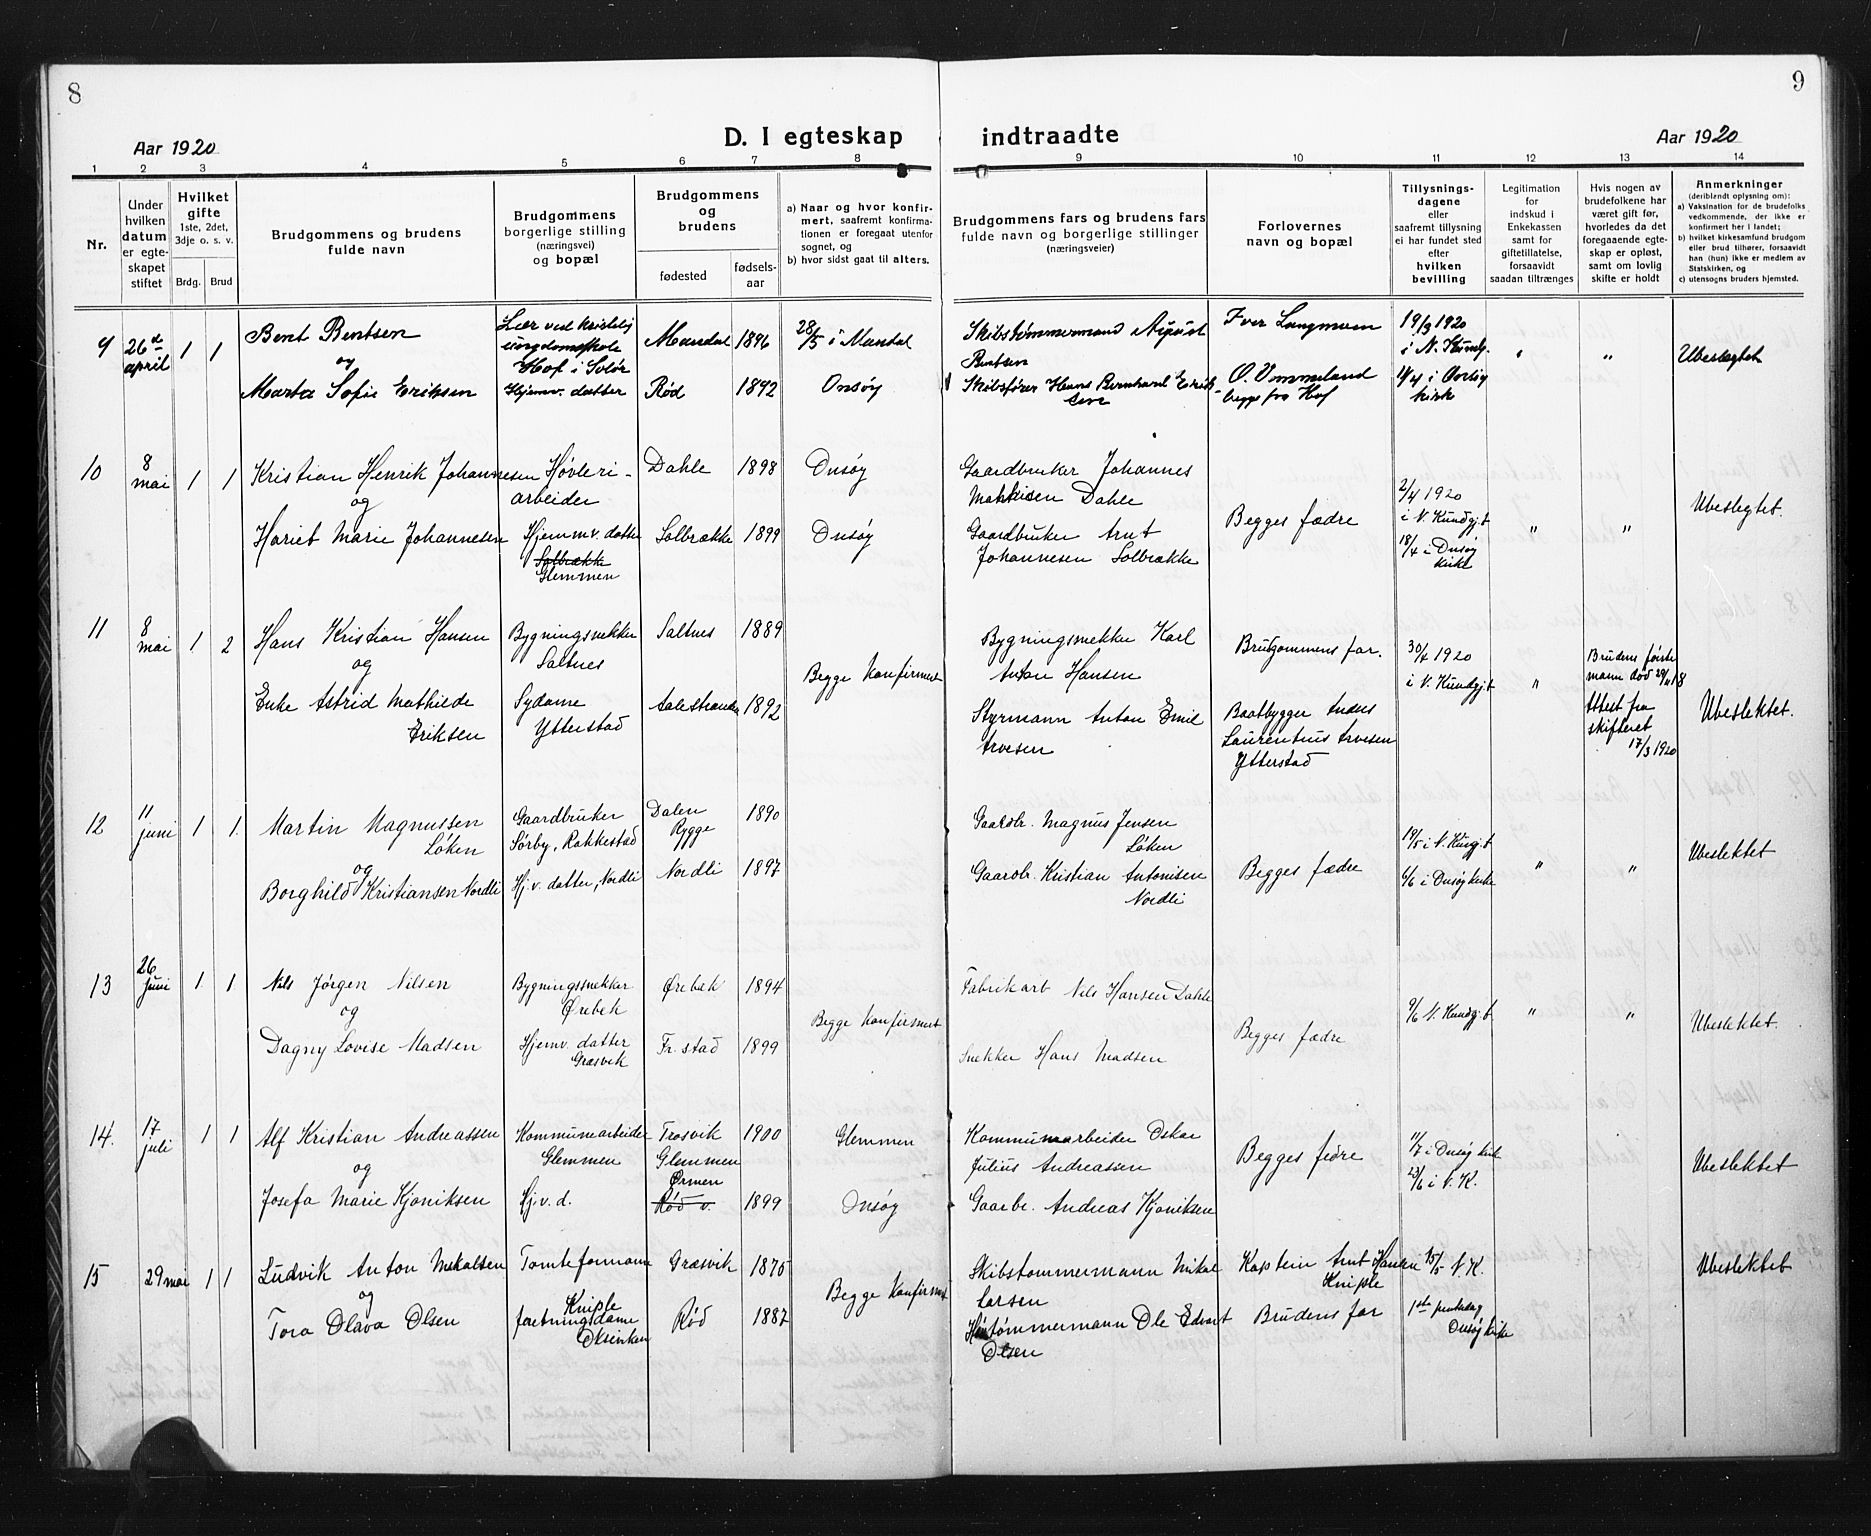 8
Aar 1920
D. I egteskap
1 2 3 4 5 6 7 8
Nr.
Under hvilken datum er egteskapet stiftet
Hvilket gifte 1ste, 2det, 3dje o. s. v.
Brdg. Brud
Brudgommens og brudens fulde navn
Brudgommens borgerlige stilling (næringsvei) og bopæl
Brudgommens og brudens
fødested fødselsaar
a) Naar og hvor konfirmert, saafremt konfirmationen er foregaat utenfor sognet, og
b) hvor sidst gaat til alters.
9 26de april 1 1 Bent Bentsen
og
Marta Sofie Eriksen
Lær ved kristelig
ungdomsskole
Hof i Solør
Hjemv. datter
Mandal 1896 28/5 i Mandal
Rød 1892 Onsøy
10 8 mai 1 1 Kristian Henrik Johannesen
og
Hariet Marie Johannesen
Høvleri-
arbeider
Hjemmv. datter
Solbrække
Glemmen
Dahle 1898 Onsøy
Solbrække 1899 Onsøy
11 8 mai 1 2 Hans Kristian Hansen
og
Enke Astrid Mathilde
Eriksen
Bygningsnekker
Saltnes
Sydame
Ytterstad
Saltnes 1889
Aalestranden 1892
Begge konfirmert
12 11 juni 1 1. Martin Magnussen
Løken
og
Borghild Kristiansen Nordli
Gaardbruker
Sørby, Rakkestad
Hj.v. datter, Nordli
Dalen
Rygge 1890
Nordli 1897
13 26 juni 1 1 Nils Jørgen Nilsen
og
Dagny Lovise Madsen
Bygningssnekker
Ørebek
Hjemv. datter
Græsvik
Ørebæk 1894
Fr.stad 1899
Begge konfirmert
14. 17 juli 1 1 Alf Kristian Andreassen
og
Josefa Marie Kjøniksen
Kommunearbeider
Glemmen
Hj.v.d.
Trosvik 1900 Glemmen
Glemmen
Ørmen
Rød v. 1899 Onsøy
15 29 mai 1 1 Ludvik Anton Mikalsen
og
Tora Olava Olsen
Tomteformann
Kniple
forretningsdame
Græsvik
Rød 1887
Begge konfirmert
9
indtraadte
Aar 1920
9 10 11 12 13 14
Brudgommens fars og brudens fars fulde navn og borgerlige stillinger (næringsveier)
Forlovernes navn og bopæl
Tillysningsdagene eller saafremt tillysning ei har fundet sted efter hvilken bevilling
Legitimation for indskud i Enkekassen samt for giftetillatelse, forsaavidt saadan tiltrænges
Hvis nogen av brudefolkene har været gift før, hvorledes da det foregaaende egteskap er opløst, samt om lovlig skifte er holdt
Anmerkninger (deriblandt oplysning om):
a) Vaksination for de brudefolks vedkommende, der ikke er konfirmert her i landet;
b) hvilket kirkesamfund brudgom eller brud tilhører, forsaavidt han (hun) ikke er medlem av Statskirken, og
c) utensogns bruders hjemsted.
Skibstømmermand August
Bentsen
Skibsfører Hans Bernhard Erik-
sen
Iver Langmoen
O. Vommeland
begge fra Hof
19/3 1920
i N. Kundg.
4/4 i Onsøy
kirke
" " Ubeslegtet
Gaardbruker Johannes
Mathisen Dahle
Gaardbruker Arnt
Johannesen Solbrække
Begges fædre
2/4 1920
i N. Kundgj.t
18/4 i Onsøy
kirke
" " Ubeslegtet.
Bygningsnekker Karl
Anton Hansen
Styrmann Anton Emil
Arvesen
Brudgommens far.
Baatbygger Anders
Laurentius Arvesen
Ytterstad
30/4 1920
i N. Kundgj.t
"
Brudens første
mann død 29/11 18
Attest fra
skifteret
17/3 1920
Ubeslektet.
Gaardbr. Magnus Jensen
Løken
Gaardbr. Kristian Antonisen
Nordli
Begges fædre
i N. Kungj.t
6/6 i Onsøy kirke
" " Ubeslektet
Fabrikarb Nils Hansen Dahle
Snekker Hans Madsen
Begges fædre
9/6 N. Kundgj.t
" " Ubeslektet.
Kommunearbeider Oskar
Julius Andreassen
Gaarbr. Andreas Kjøniksen
Begges fedre
11/7 i Onsøy kirke
23/6 i N. K.
Ubeslektet
Skibstømmermann Mikal
Larsen
tømmermann Ole Edvart
Olsen
Kaptein Arnt Hansen
Kniple
Brudens far
15/5 N. K.
1ste pinsedag
Onsøy kirke
Ubeslektet